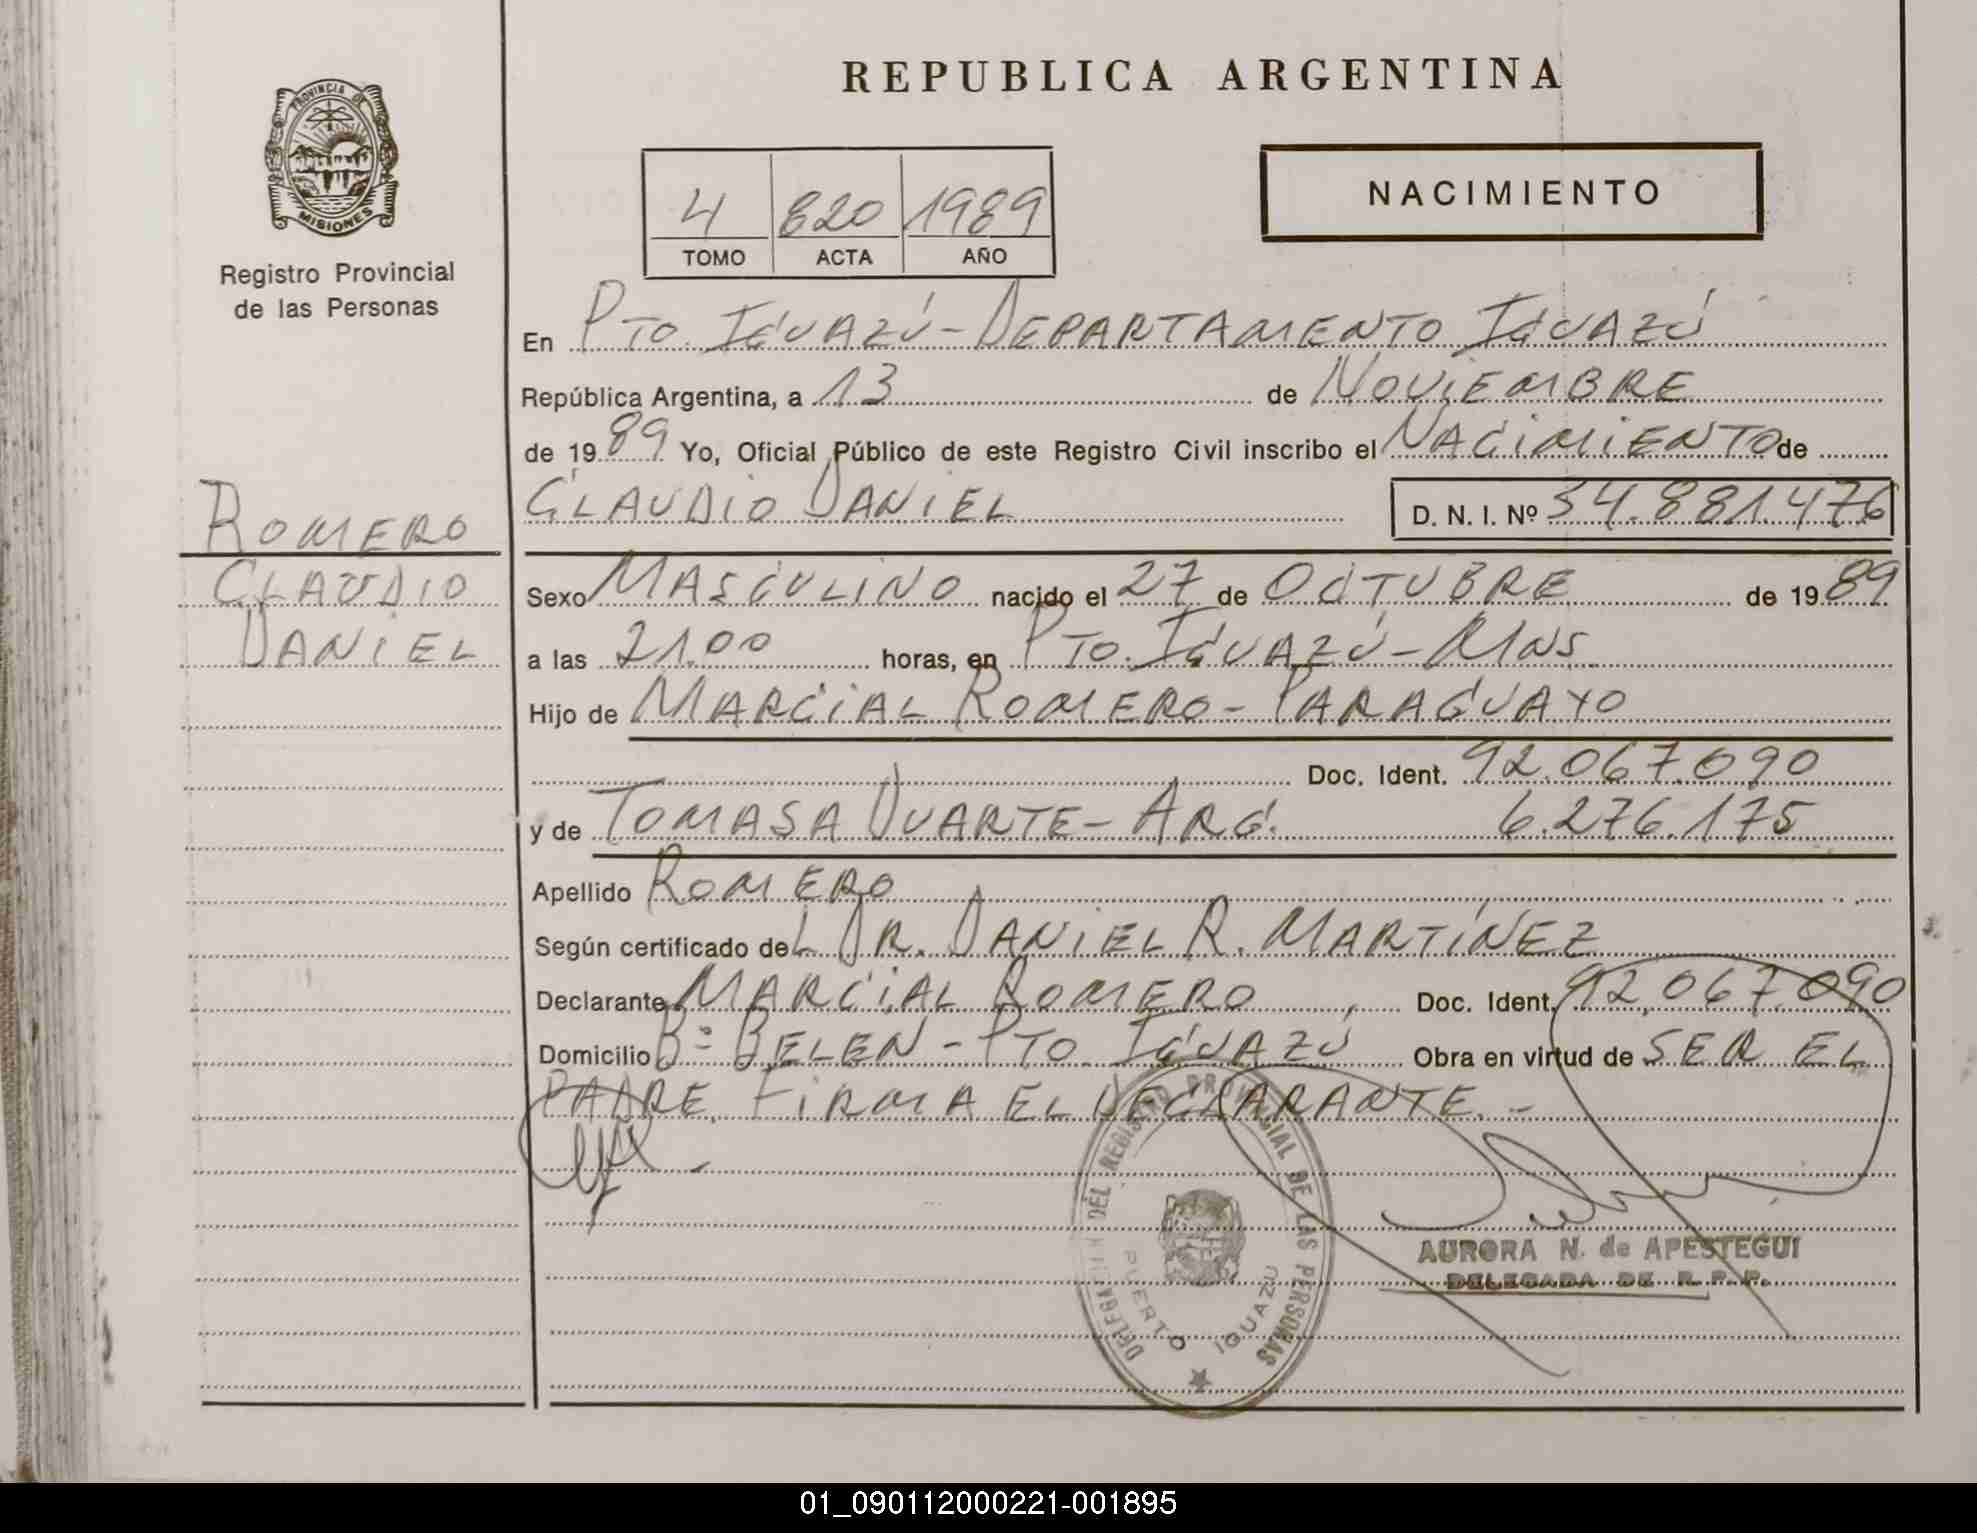 REPUBLICA ARGENTINA
PROVINCIA DE
MISIONES
Registro Provincial
de las Personas
4 820 1989
TOMO ACTA AÑO
NACIMIENTO
En PTO. IGUAZÚ - DEPARTAMENTO IGUAZÚ
República Argentina, a 13 de NOVIEMBRE
de 1989 Yo, Oficial Público de este Registro Civil inscribo el NACIMIENTO de
CLAUDIO DANIEL D. N. I. Nº 34.881.476
ROMERO
CLAUDIO
DANIEL
Sexo MASCULINO nacido el 27 de OCTUBRE de 1989
a las 21.00 horas, en PTO. IGUAZÚ - MNS
Hijo de MARCIAL ROMERO - PARAGUAYO
Doc. Ident. 92.067.090
y de TOMASA DUARTE - ARG. 6.276.175
Apellido ROMERO
Según certificado del DR. DANIEL R. MARTÍNEZ
Declarante MARCIAL ROMERO, Doc. Ident. 92.067.090
Domicilio Bº BELEN - PTO. IGUAZÚ Obra en virtud de SER EL
PADRE. FIRMA EL DECLARANTE. -
DELEGACION DEL REGISTRO PROVINCIAL DE LAS PERSONAS
PUERTO IGUAZU
AURORA N. de APESTEGUI
DELEGADA DE R. P. P.
01_090112000221-001895